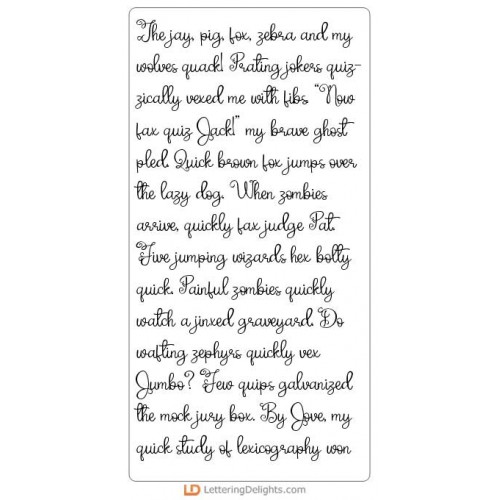 The jay, pig, fox, zebra and my
wolves quack! Prating jokers quiz-
zically vexed me with fibs. "Now
fax quiz Jack!" my brave ghost
pled. Quick brown fox jumps over
the lazy dog. When zombies
arrive, quickly fax judge Pat.
Five jumping wizards hex bolty
quick. Painful zombies quickly
watch a jinxed graveyard. Do
wafting zephyrs quickly vex
Jumbo? Few quips galvanized
the mock jury box. By Jove, my
quick study of lexicography won
LD LetteringDelights.com